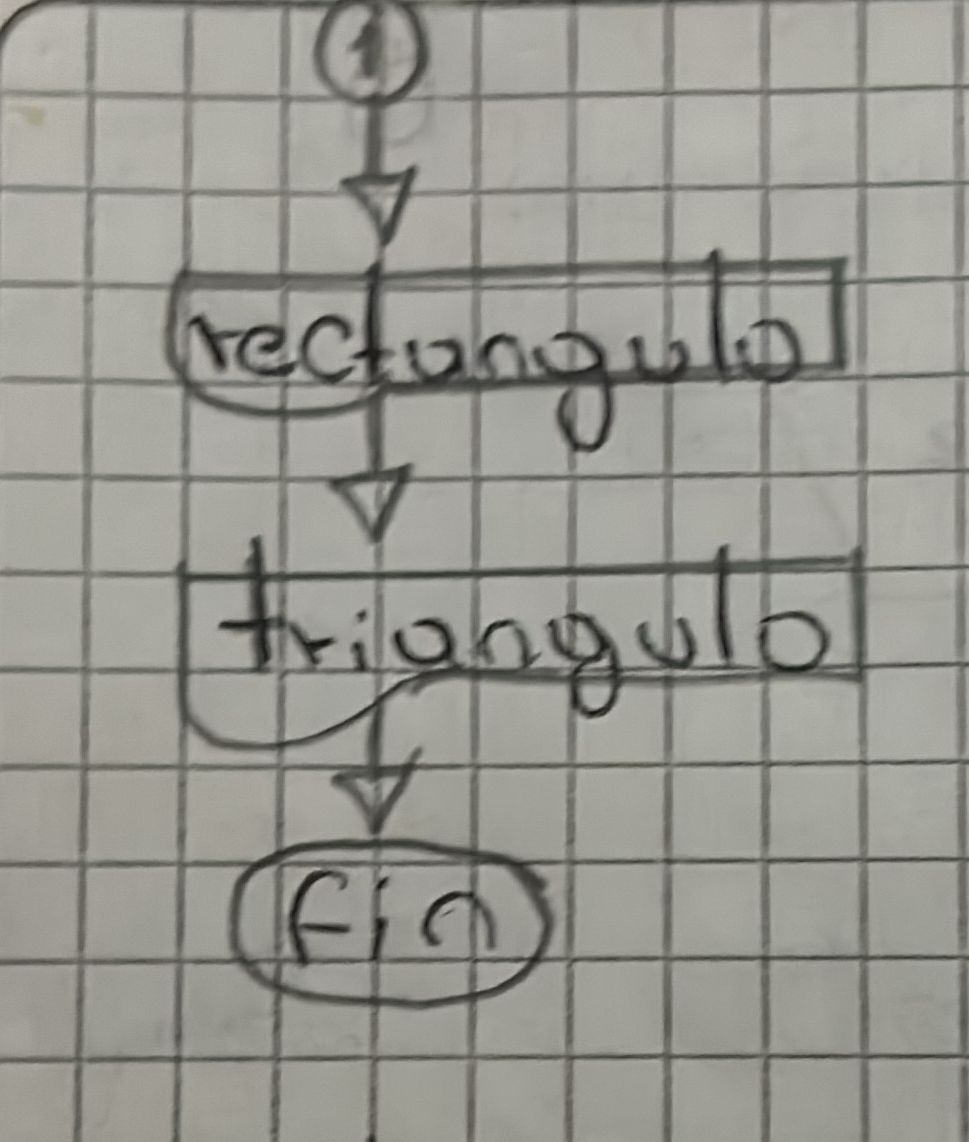 1
rectangulo
triangulo
fin